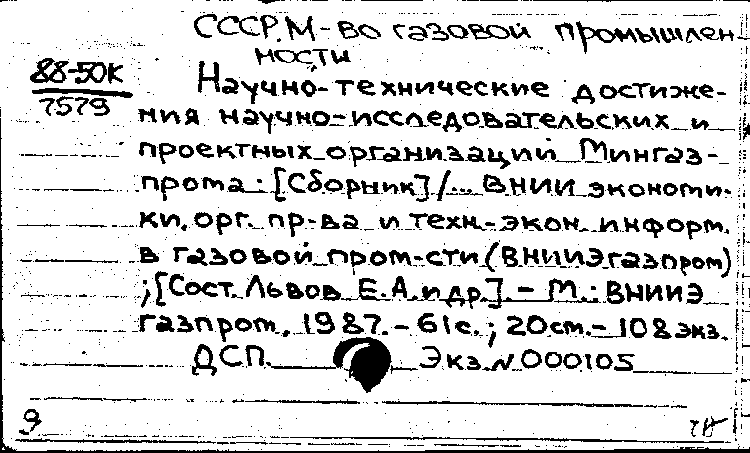 СССР. М-во газовой промышлен-
ности
88-50К
7579
Научно-технические достиже-
ния научно-исследовательских и
проектных организаций Мингаз-
прома : [Сборник] / ... ВНИИ экономи-
ки, орг. пр-ва и техн.-экон. информ.
в газовой пром-сти (ВНИИЭгазпром)
; [Сост. Львов Е.А. и др.]. - М. : ВНИИЭ
газпром, 1987. - 61 с. ; 20 см. - 108 экз.
ДСП. Экз. N 000105
9